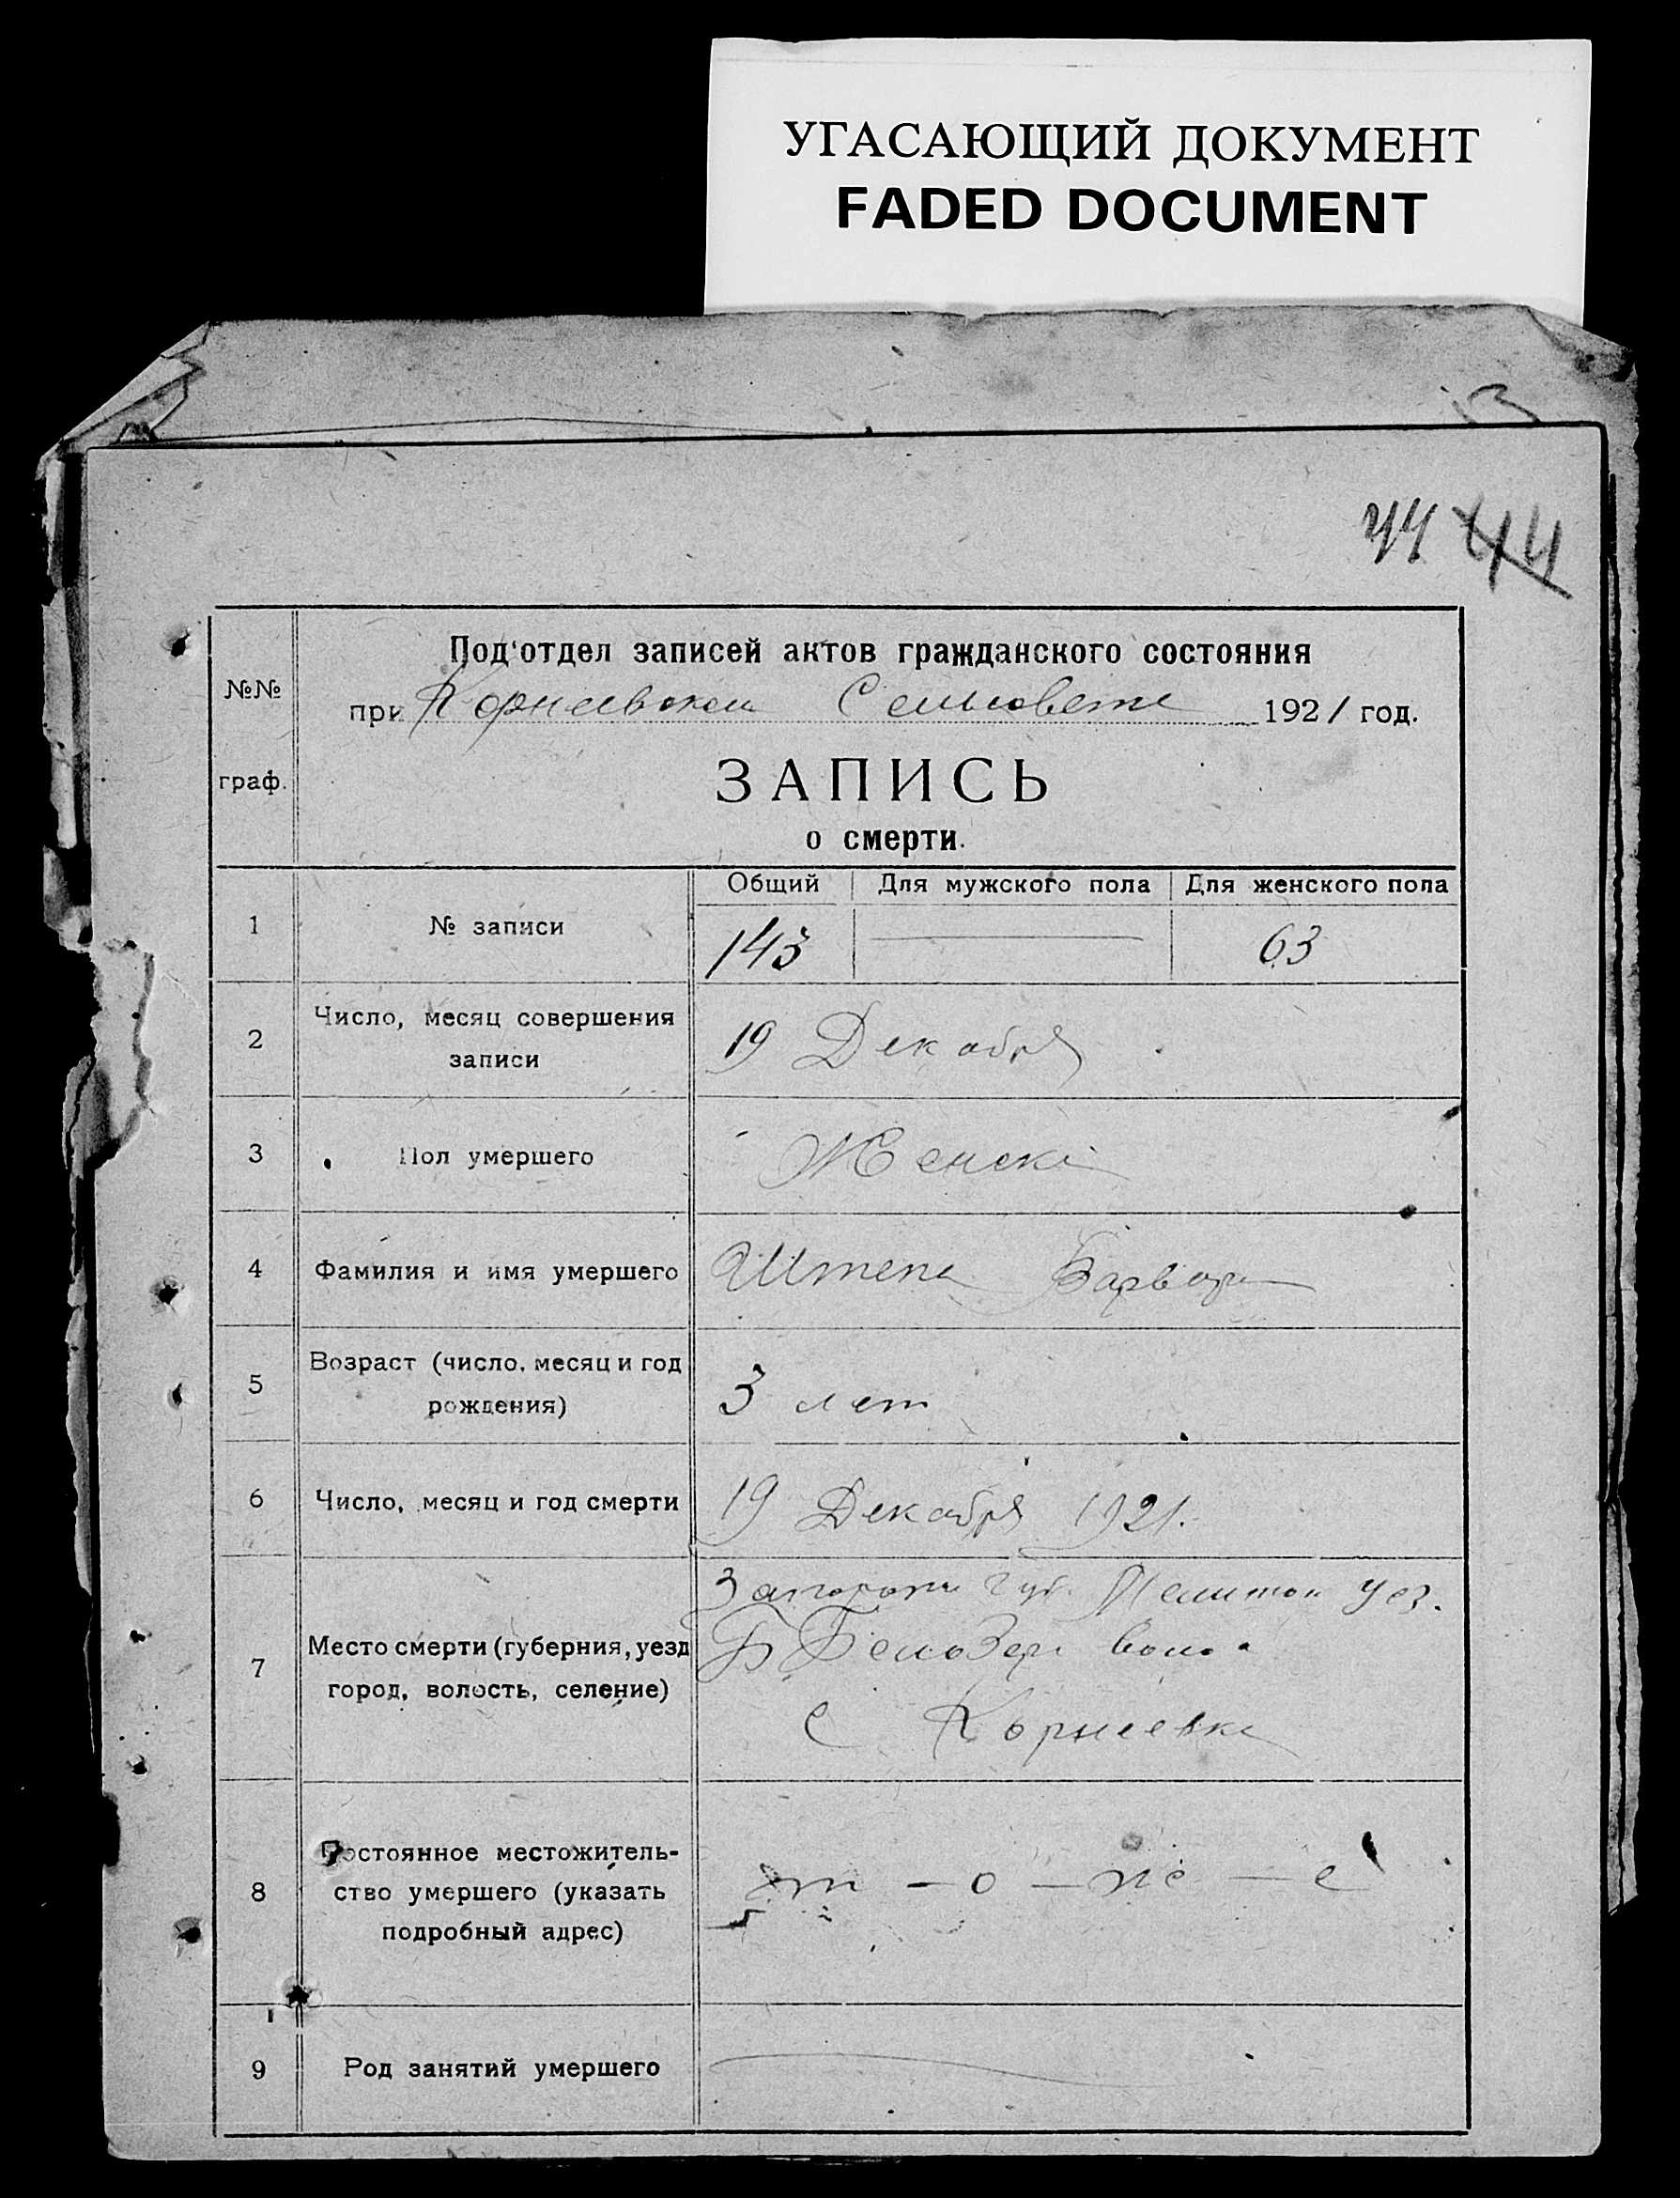 УГАСАЮЩИЙ ДОКУМЕНТ
FADED DOCUMENT
44 44
№№ граф.
Под'отдел записей актов гражданского состояния
при Корнеевском Сельсовете 1921 год.
ЗАПИСЬ
о смерти.
Общий Для мужского пола Для женского пола
1 № записи 143 — 63
2 Число, месяц совершения
записи
19 Декабря
3 Пол умершего Женски
4 Фамилия и имя умершего Штепа Варвара
5 Возраст (число, месяц и год
рождения)
3 лет
6 Число, месяц и год смерти 19 Декабря 1921.
7 Место смерти (губерния, уезд
город, волость, селение)
Запорож Губ. Мелитоп уез.
Б Белозер воло
с Корнеевка
8 Постоянное местожитель-
ство умершего (указать
подробный адрес)
т — о — же — е
9 Род занятий умершего